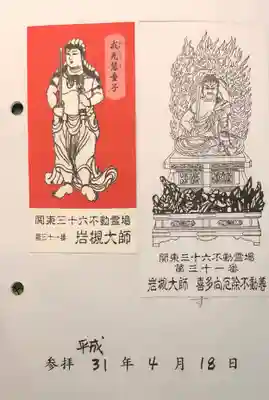 戒光慧童子
関東三十六不動霊場
第三十一番 岩槻大師
関東三十六不動霊場
第三十一番
岩槻大師 喜多向厄除不動尊
平成
参拝 31 年 4 月 18 日